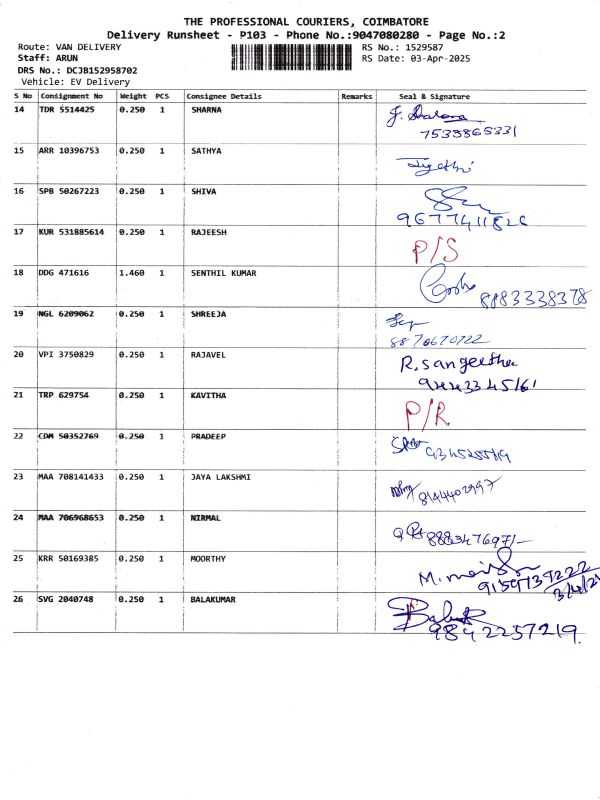 THE PROFESSIONAL COURIERS, COIMBATORE
Delivery Runsheet - P103 - Phone No.:9047080280 - Page No.:2
Route: VAN DELIVERY RS No.: 1529587
Staff: ARUN RS Date: 03-Apr-2025
DRS No.: DCJB152958702
Vehicle: EV Delivery
S No Consignment No Weight PCS Consignee Details Remarks Seal & Signature
14 TDR 5514425 0.250 1 SHARNA
7538865331
15 ARR 10396753 0.250 1 SATHYA
16 SPB 50267223 0.250 1 SHIVA
17 KUR 531885614 0.250 1 RAJEESH P/S
18 DDG 471616 1.460 1 SENTHIL KUMAR 8883338378
19 NGL 6209062 0.250 1 SHREEJA
8870670722
20 VPI 3750829 0.250 1 RAJAVEL R.sangeetha
9443345161
21 TRP 629754 0.250 1 KAVITHA P/R.
22 CDM 50352769 0.250 1 PRADEEP
23 MAA 708141433 0.250 1 JAYA LAKSHMI 8144402997
24 MAA 706968653 0.250 1 NIRMAL
25 KRR 50169385 0.250 1 MOORTHY
9159739222
26 SVG 2040748 0.250 1 BALAKUMAR
9842257219.